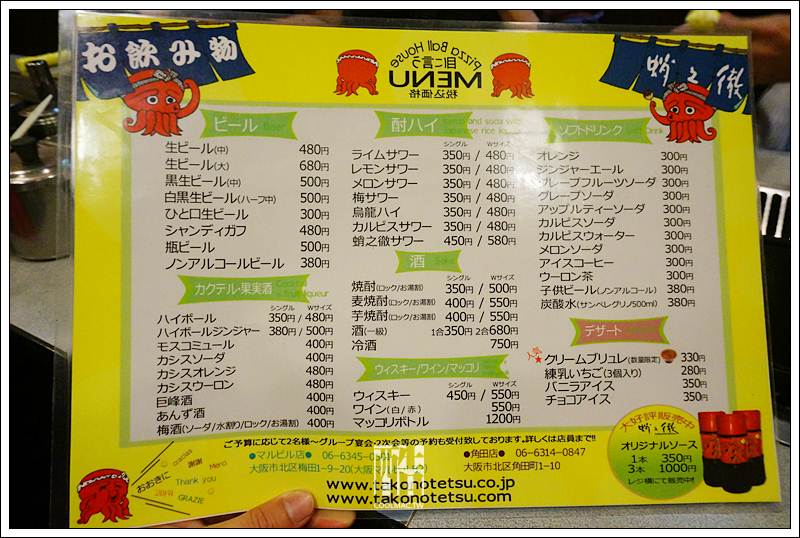 お飲み物
Pizza Ball House
目に言う
MENU
税込価格
蛸之徹
ビール Beer
生ビール(中) 480円
生ビール(大) 680円
黒生ビール(中) 500円
白黒生ビール(ハーフ中) 500円
ひと口生ビール 300円
シャンディガフ 480円
瓶ビール 500円
ノンアルコールビール 380円
カクテル・果実酒
シングル Wサイズ
ハイボール 350円 / 480円
ハイボールジンジャー 380円 / 500円
モスコミュール 400円
カシスソーダ 400円
カシスオレンジ 480円
カシスウーロン 480円
巨峰酒 400円
あんず酒 400円
梅酒(ソーダ/水割り/ロック/お湯割) 400円
酎ハイ
シングル Wサイズ
ライムサワー 350円 / 480円
レモンサワー 350円 / 480円
メロンサワー 350円 / 480円
梅サワー 350円 / 480円
烏龍ハイ 350円 / 480円
カルピスサワー 350円 / 480円
蛸之徹サワー 450円 / 580円
酒 Sake
シングル Wサイズ
焼酎(ロック/お湯割) 350円 / 500円
麦焼酎(ロック/お湯割) 400円 / 550円
芋焼酎(ロック/お湯割) 400円 / 550円
酒(一級) 1合350円 2合680円
冷酒 750円
ウィスキー/ワイン/マッコリ
シングル Wサイズ
ウィスキー 450円 / 550円
ワイン(白/赤) 550円
マッコリボトル 1200円
ソフトドリンク Soft Drink
オレンジ 300円
ジンジャーエール 300円
グレープフルーツソーダ 300円
グレープソーダ 300円
アップルティーソーダ 300円
カルピスソーダ 300円
カルピスウォーター 300円
メロンソーダ 300円
アイスコーヒー 300円
ウーロン茶 300円
子供ビール(ノンアルコール) 380円
炭酸水(サンペレグリノ500ml) 380円
デザート
人気★クリームブリュレ(数量限定) 330円
練乳いちご(3個入り) 280円
バニラアイス 350円
チョコアイス 350円
大好評販売中
蛸之徹
オリジナルソース
1本 350円
3本 1000円
レジ横にて販売中!
ご予算に応じて2名様〜グループ宴会・2次会等の予約も受付致しております。詳しくは店員まで!!
●マルビル店 06-6345-0301
大阪市北区梅田1-9-20(大阪マルビル
●角田店 06-6314-0847
大阪市北区角田町1-10
www.takonotetsu.co.jp
www.takonotetsu.com
おおきに
gracias
謝謝
Merci
Thank you
GRAZIE
COOLMAC.TW